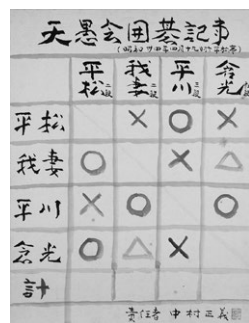 天愚会囲碁記事
平松 二段 我妻 二段 平川 三段 倉光
平松 × ○ ×
我妻 ○ × △
平川 × ○ ○
倉光 ○ △ ×
計
責任者 中村正義